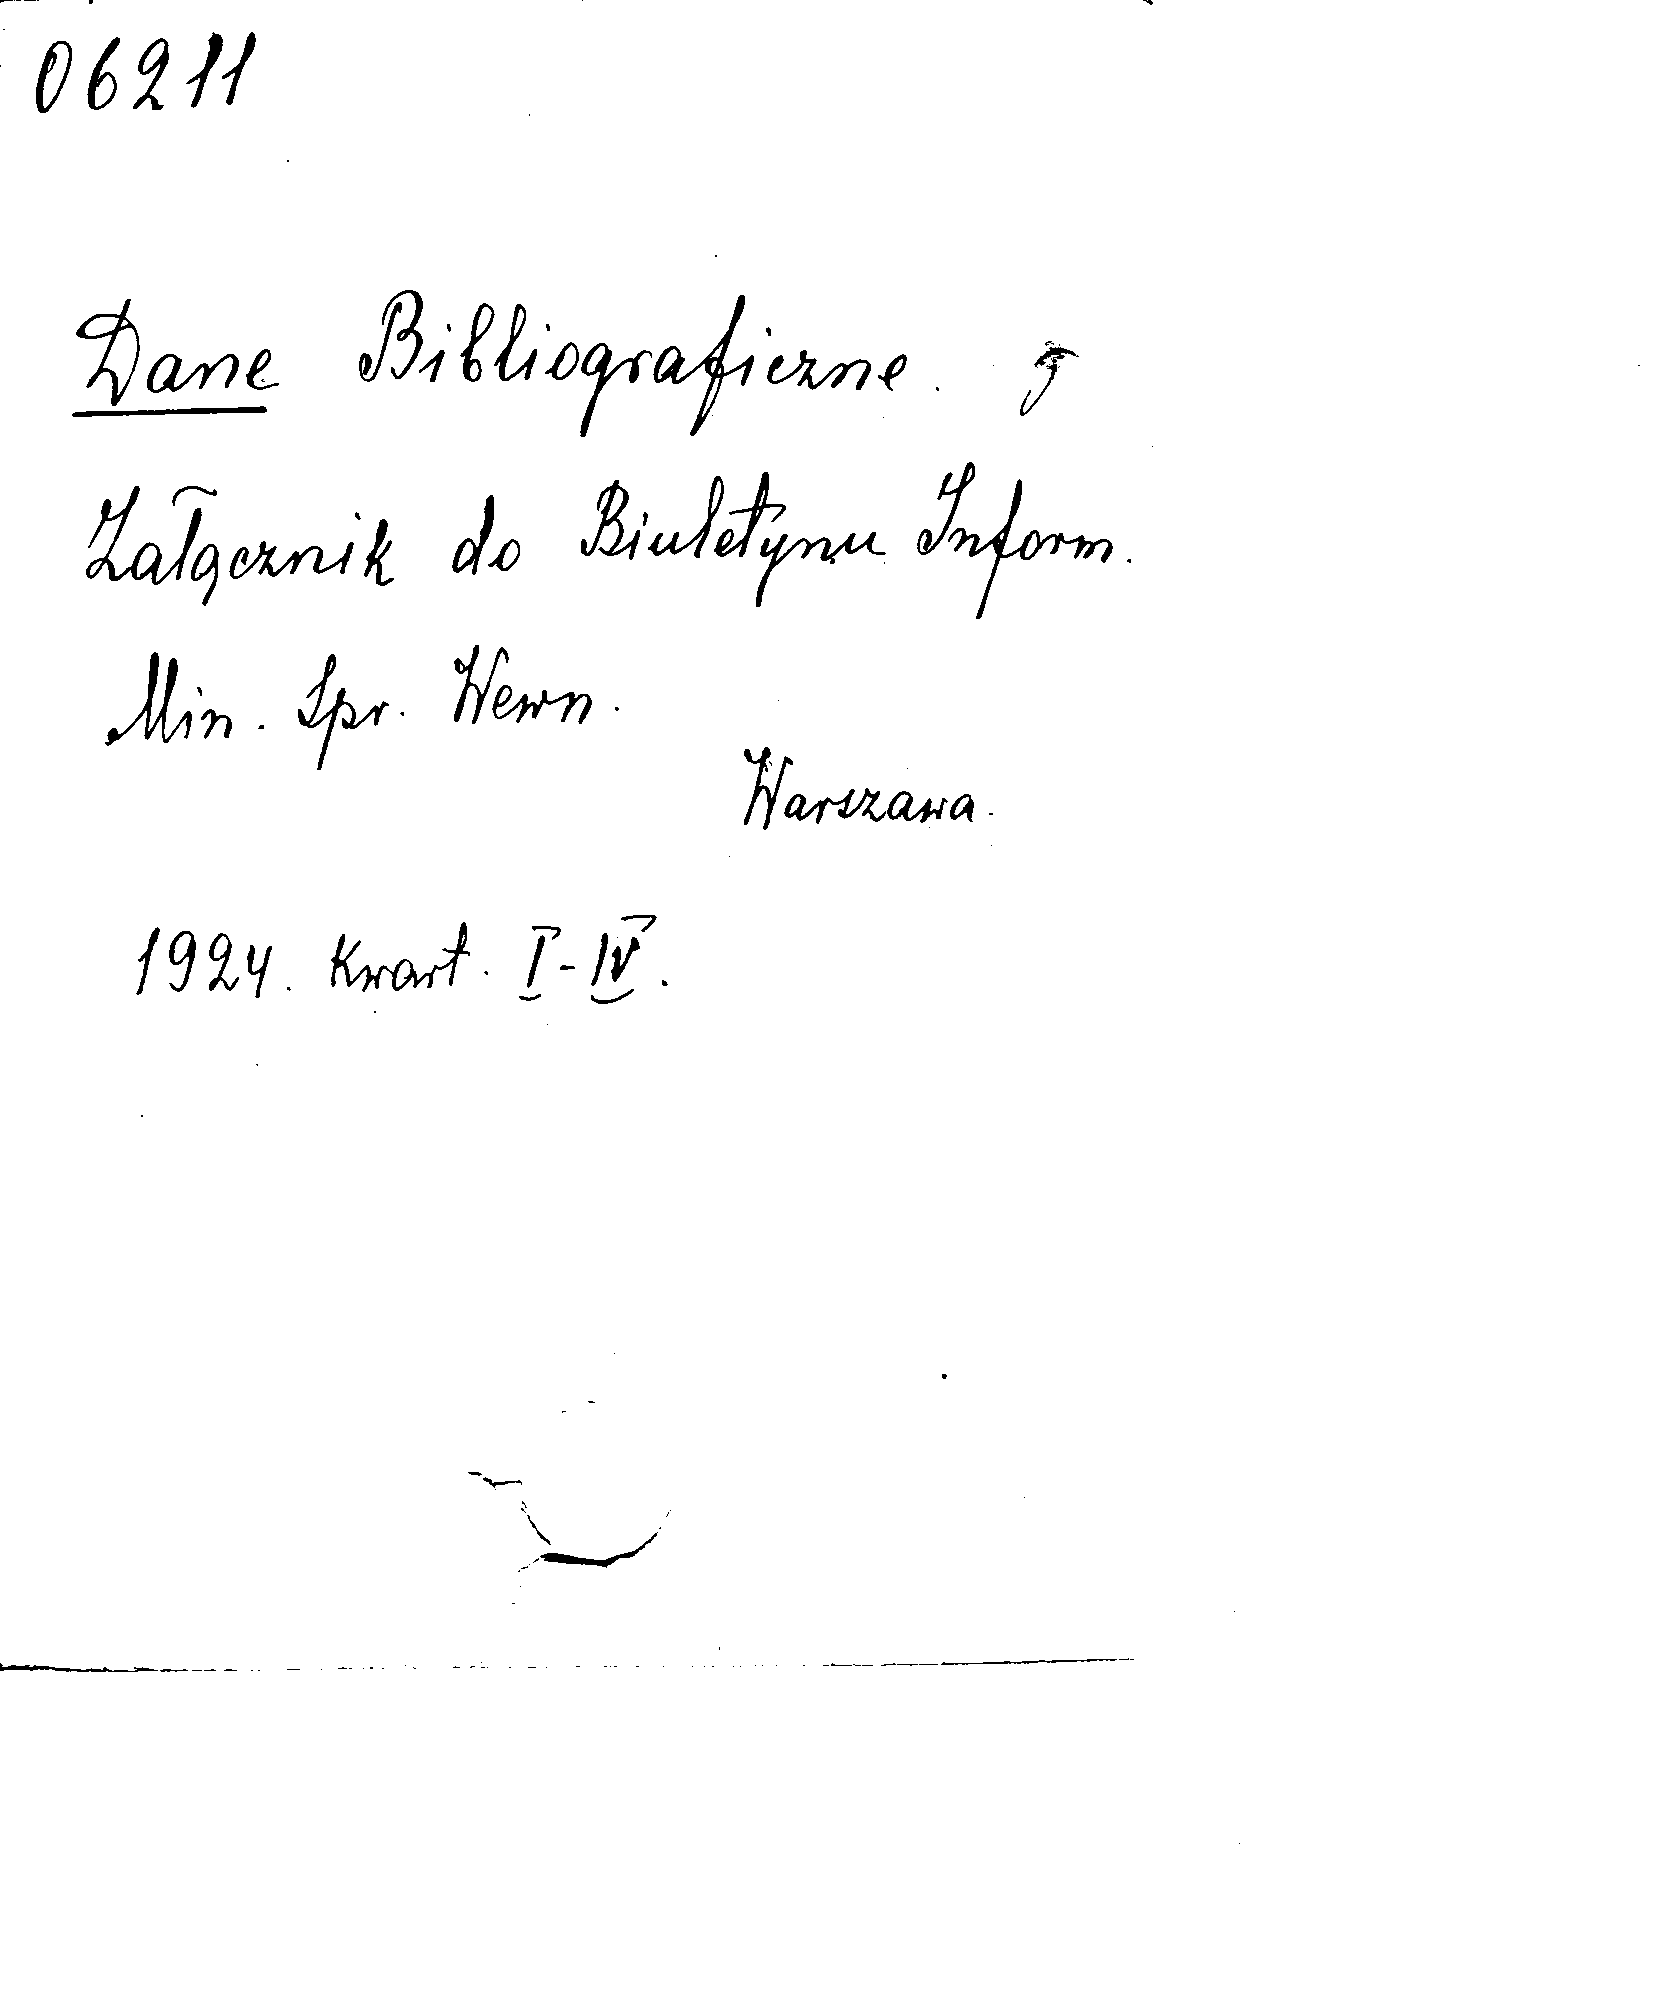 06211
Dane Bibliograficzne.
Załącznik do Biuletynu Inform.
Min. Spr. Wewn.
Warszawa.
1924. Kwart. I-IV.